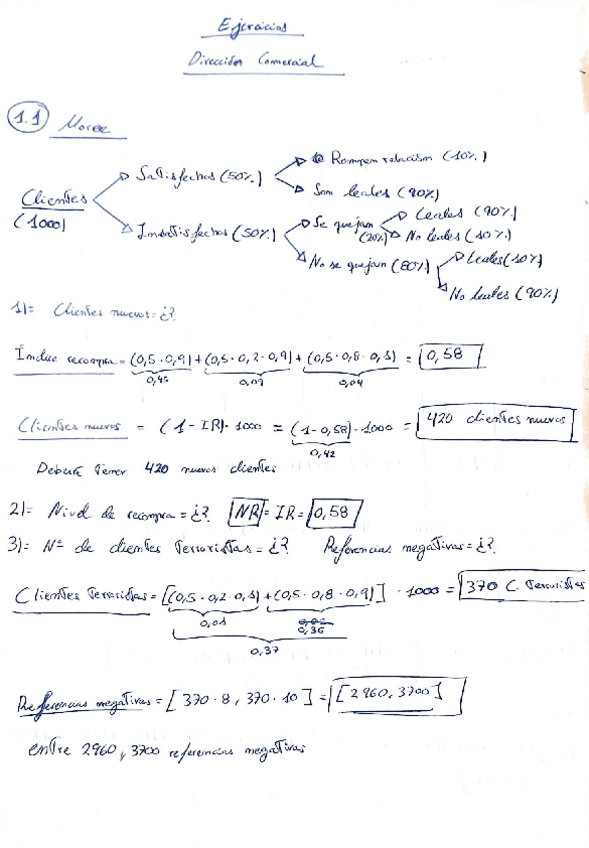 Ejercicios
Dirección Comercial
1.1 Moree
Clientes (1000)
Satisfechos (50%)
Rompen relación (10%)
Son leales (90%)
Insatisfechos (50%)
Se quejan (20%)
Leales (90%)
No leales (10%)
No se quejan (80%)
Leales (10%)
No leales (90%)
1)= Clientes nuevos = ¿?
Índice recompra = (0,5·0,9)+(0,5·0,2·0,9)+(0,5·0,8·0,1) = 0,58
0,45 0,09 0,04
Clientes nuevos = (1-IR)·1000 = (1-0,58)·1000 = 420 clientes nuevos
0,42
Deberá tener 420 nuevos clientes
2)= Nivel de recompra = ¿? NR = IR = 0,58
3)= Nº de clientes terroristas = ¿? Referencias negativas = ¿?
Clientes terroristas = [(0,5·0,2·0,1)+(0,5·0,8·0,9)]·1000 = 370 C. Terroristas
0,01 0,36
0,37
Referencias negativas = [370·8, 370·10] = [2960, 3700]
entre 2960 y 3700 referencias negativas